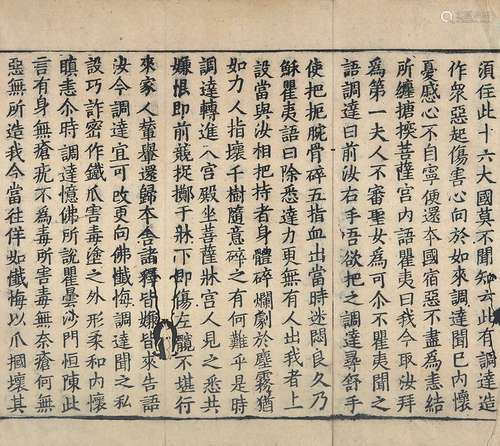 須徃此十六大國莫不聞知云此有調達造
作衆惡起傷害心向於如來調達聞巳內懷
憂慼心不自寧便還本國宿惡不盡爲恚結
所纏搪揬菩薩宮內語瞿夷曰我今取汝拜
爲第一夫人不審聖女爲可尒不瞿夷聞之
語調達曰前汝右手吾欲把之調達尋舒手
使把扼腕骨碎五指血出當時迷悶良久乃
穌瞿夷語曰除悉達力更無有人出我者上
設當與汝相把持者身體碎爛劇於塵霧猶
如力人指壞千樹隨意碎之有何難乎是時
調達轉進入宮殿坐菩薩牀宮人見之悉共
嫌恨即前競捉擲于牀下即傷左髖不堪行
來家人轝轝還歸本舍諸釋皆嫌皆來告語
汝今調達宜可改更向佛懺悔調達聞之私
設巧詐密作鐵爪害毒塗之外形柔和內懷
瞋恚尒時調達憶佛所說瞿曇沙門恒陳此
言有身無瘡疣不爲毒所害毒無奈瘡何無
惡無所造我今當往佯如懺悔以爪摑壞其